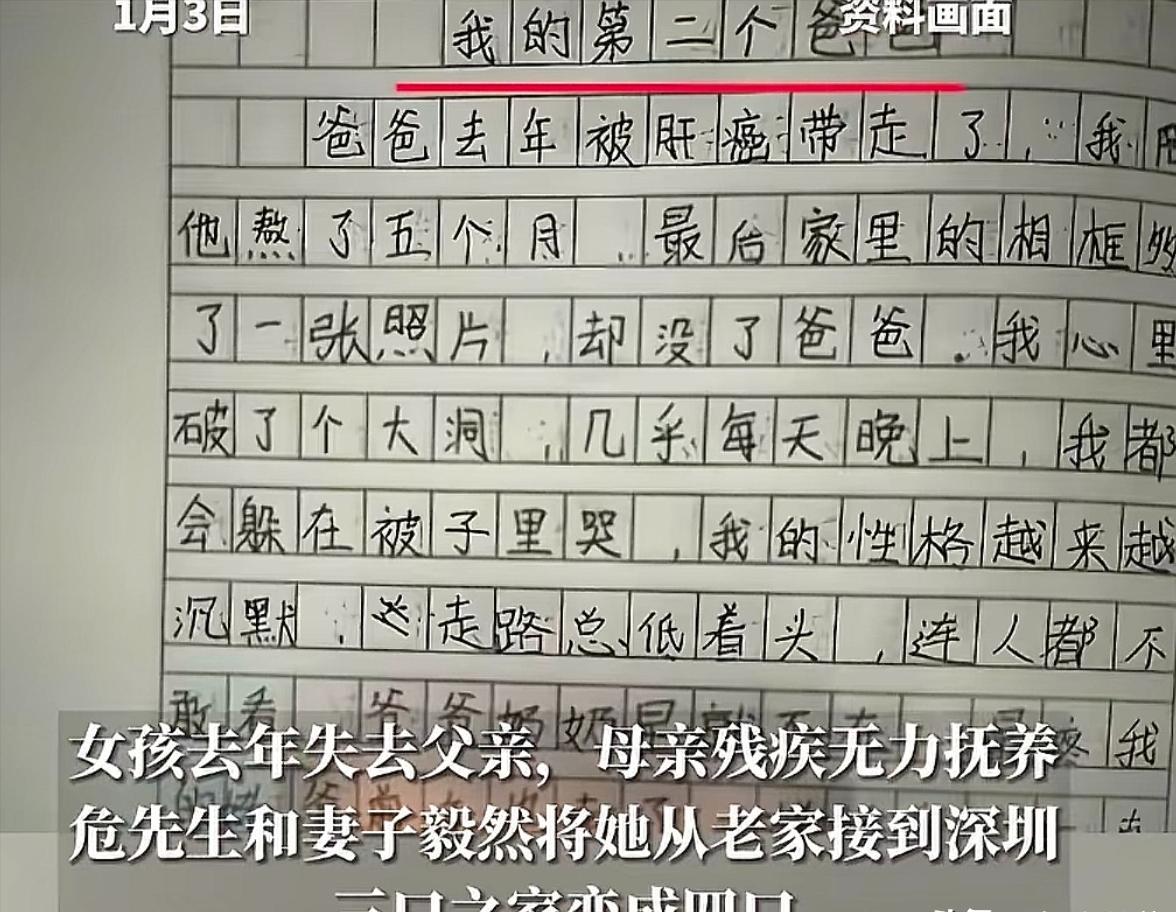 1月3日
资料画面
我的第二个爸爸
爸爸去年被肝癌带走了，我陪
他熬了五个月，最后家里的相框多
了一张照片，却没了爸爸。我心里
破了个大洞，几乎每天晚上，我都
会躲在被子里哭，我的性格越来越
沉默，走路总低着头，连人都不
敢看 爷爷奶奶早就不在 最疼我
女孩去年失去父亲，母亲残疾无力抚养
危先生和妻子毅然将她从老家接到深圳
三口之家变成四口